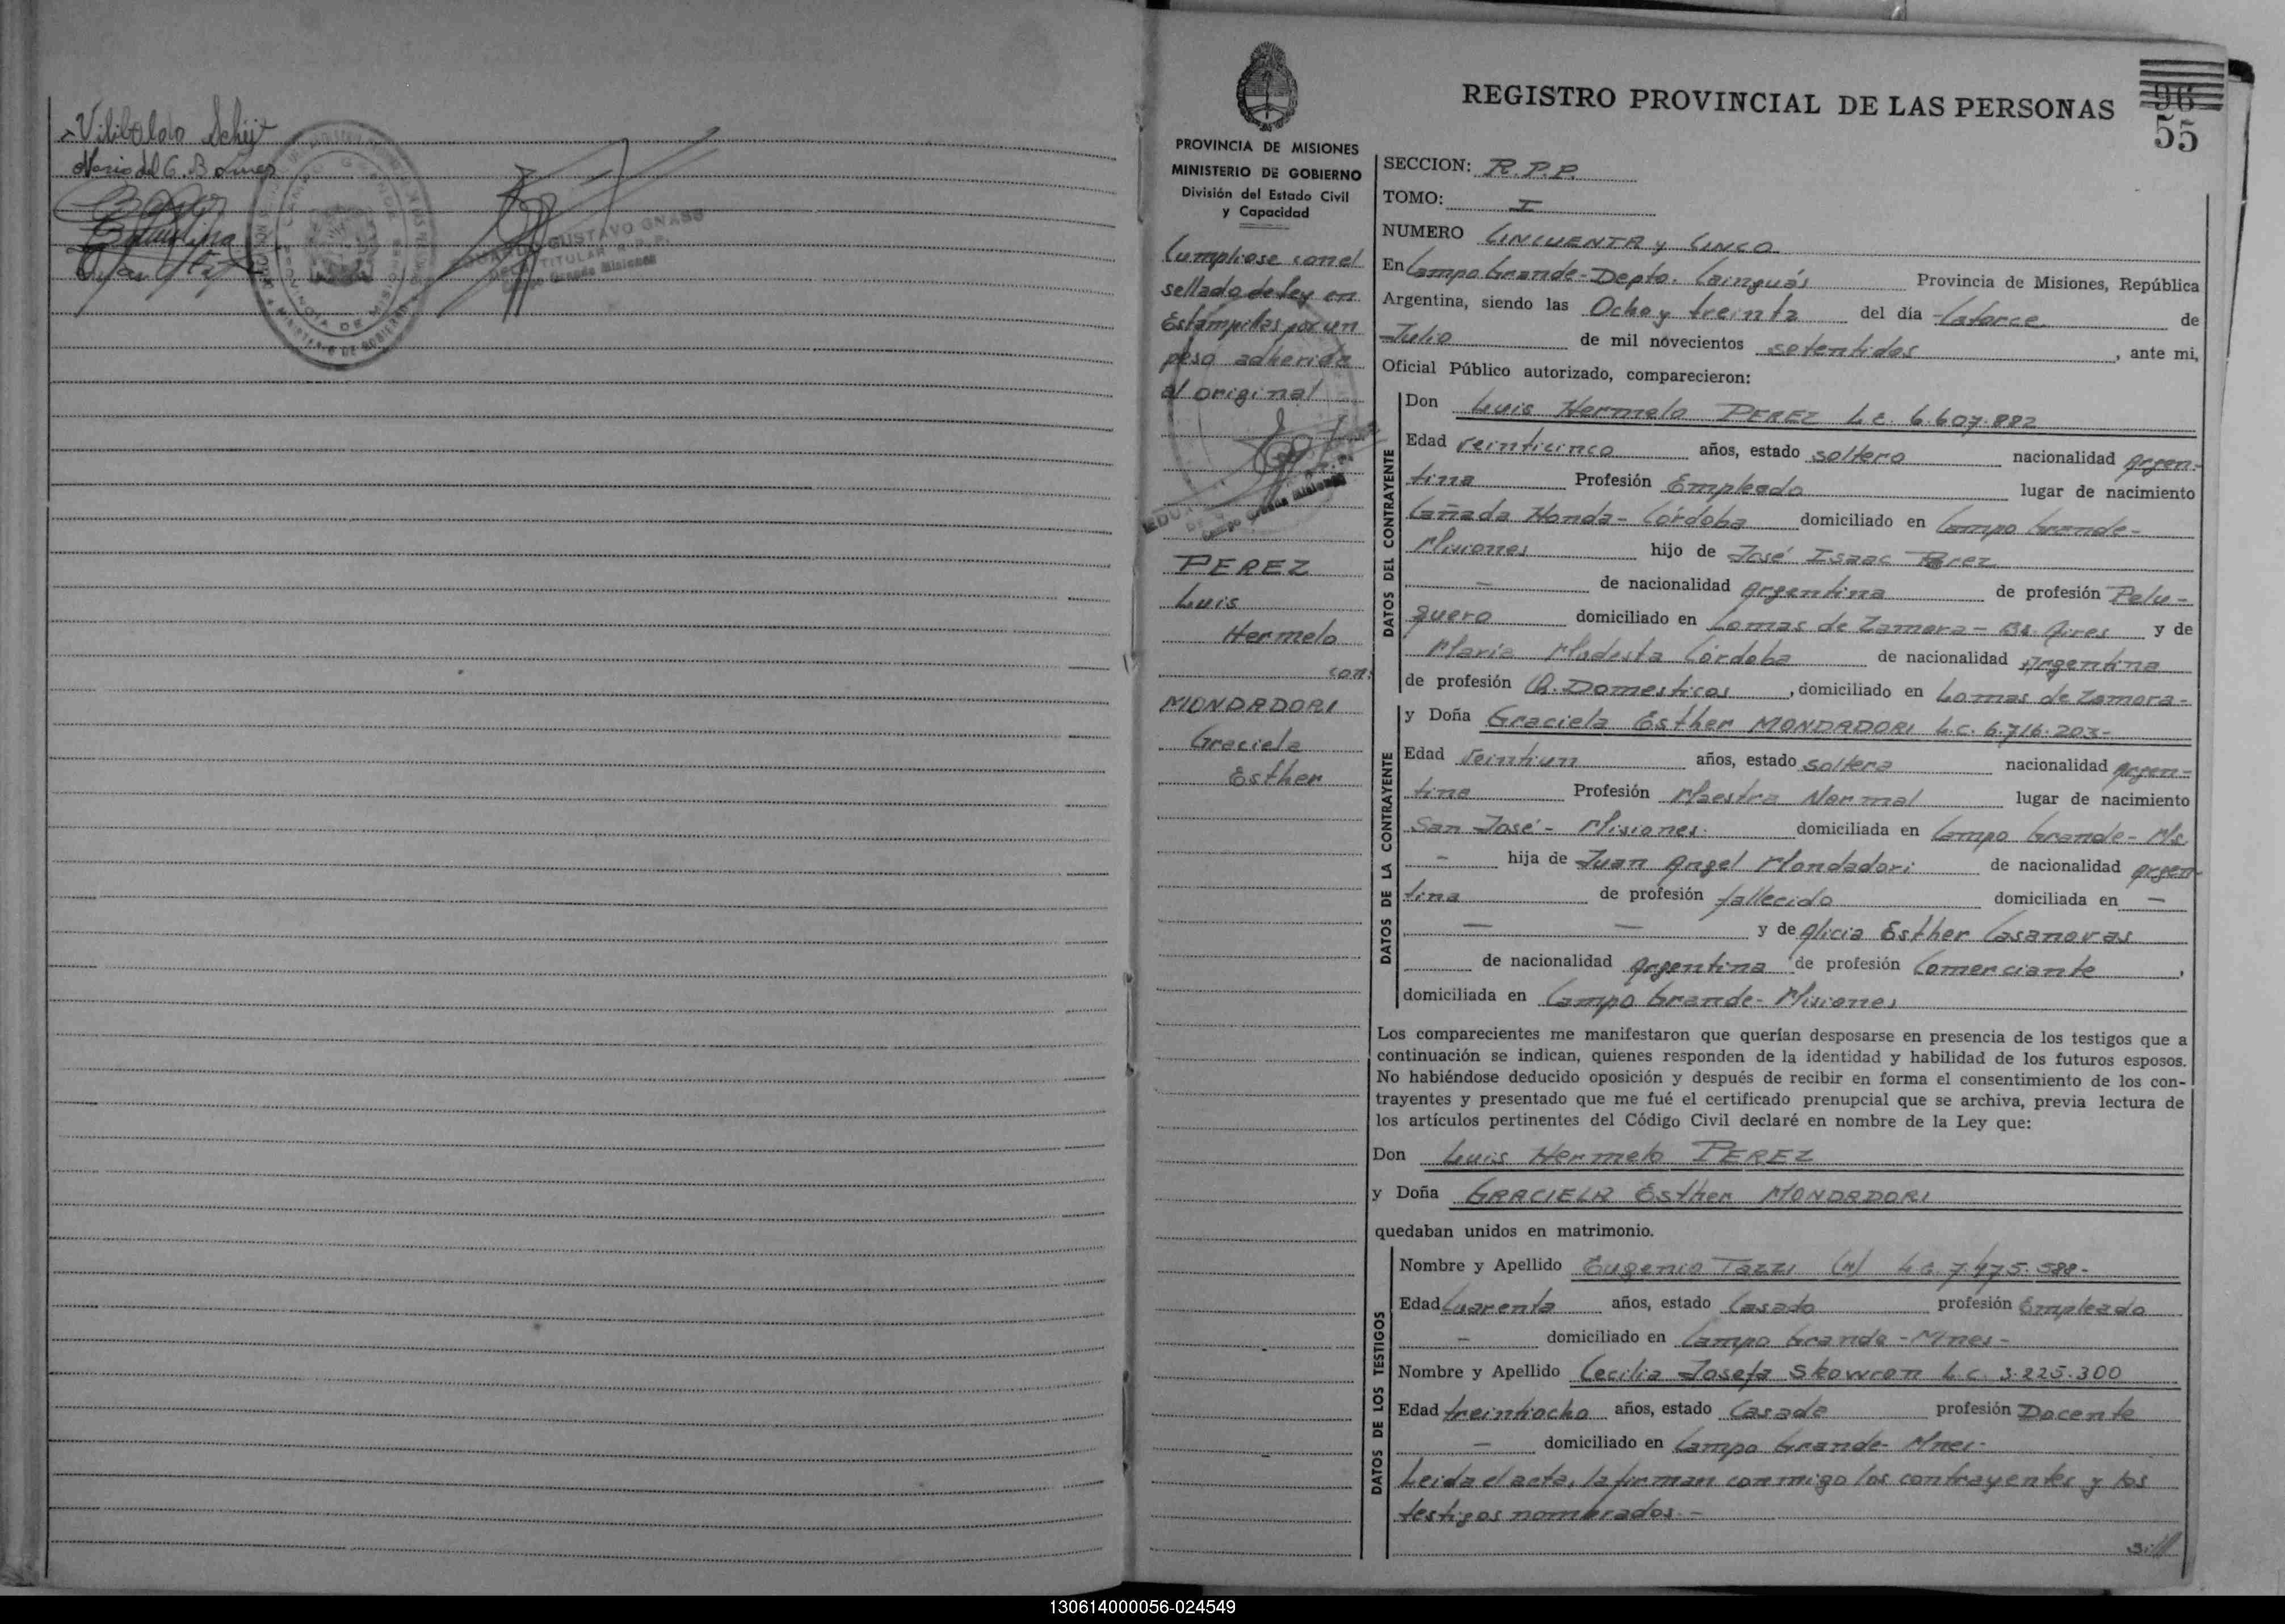 Vilibaldo
Maria del C. B
GUSTAVO GNASS
TITULAR R. P. P.
Campo Grande Misiones
PROVINCIA DE MISIONES
MINISTERIO DE GOBIERNO
División del Estado Civil
y Capacidad
Cumpliose con el
sellado de ley en
Estampillas por un
peso adherida
al original
Campo Grande Misiones
PEREZ
Luis
Hermelo
con:
MONDADORI
Graciela
Esther
REGISTRO PROVINCIAL DE LAS PERSONAS
96
55
SECCION: R.P.P.
TOMO: I
NUMERO CINCUENTA y CINCO
En Campo Grande - Depto. Cainguás Provincia de Misiones, República
Argentina, siendo las Ocho y treinta del dia Catorce de
Julio de mil novecientos setentidos, ante mi,
Oficial Público autorizado, comparecieron:
DATOS DEL CONTRAYENTE
Don Luis Hermelo PEREZ L.E. 6.607.882
Edad veinticinco años, estado soltero nacionalidad argen-
tina Profesión Empleado lugar de nacimiento
Cañada Honda - Córdoba domiciliado en Campo Grande -
Misiones hijo de José Isaac Perez
— de nacionalidad argentina de profesión Pelu-
quero domiciliado en Lomas de Zamora - Bs. Aires y de
Maria Modesta Córdoba de nacionalidad Argentina
de profesión Q. Domesticos, domiciliado en Lomas de Zamora -
DATOS DE LA CONTRAYENTE
y Doña Graciela Esther MONDADORI L.C. 6.716.203-
Edad Veintiun años, estado soltera nacionalidad argen-
tina Profesión Maestra Normal lugar de nacimiento
San José - Misiones. domiciliada en Campo Grande - Ms.
- hija de Juan Angel Mondadori de nacionalidad argen-
tina de profesión fallecido domiciliada en —
— — y de Alicia Esther Casanovas
de nacionalidad argentina de profesión Comerciante,
domiciliada en Campo Grande - Misiones
Los comparecientes me manifestaron que querían desposarse en presencia de los testigos que a
continuación se indican, quienes responden de la identidad y habilidad de los futuros esposos.
No habiéndose deducido oposición y después de recibir en forma el consentimiento de los con-
trayentes y presentado que me fué el certificado prenupcial que se archiva, previa lectura de
los artículos pertinentes del Código Civil declaré en nombre de la Ley que:
Don Luis Hermelo PEREZ
y Doña GRACIELA Esther MONDADORI
quedaban unidos en matrimonio.
DATOS DE LOS TESTIGOS
Nombre y Apellido Eugenio Tazzi (h) L.E. 7.475.588-
Edad Cuarenta años, estado Casado profesión Empleado
- domiciliado en Campo Grande - Mnes -
Nombre y Apellido Cecilia Josefa Skowron L.C. 3.225.300
Edad treintiocho años, estado Casada profesión Docente
— domiciliado en Campo Grande - Mnes -
Leida el acta, la firman conmigo los contrayentes y los
testigos nombrados. -
130614000056-024549